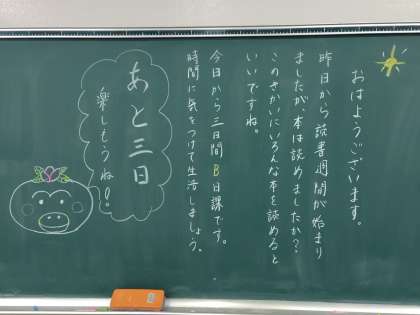 おはようございます。
昨日から読書週間が始まり
ましたが本は読めましたか?
このきかいにいろんな本を読めると
いいですね。
今日から三日間B日課です。
時間に気をつけて生活しましょう。
あと三日
楽しもうね!